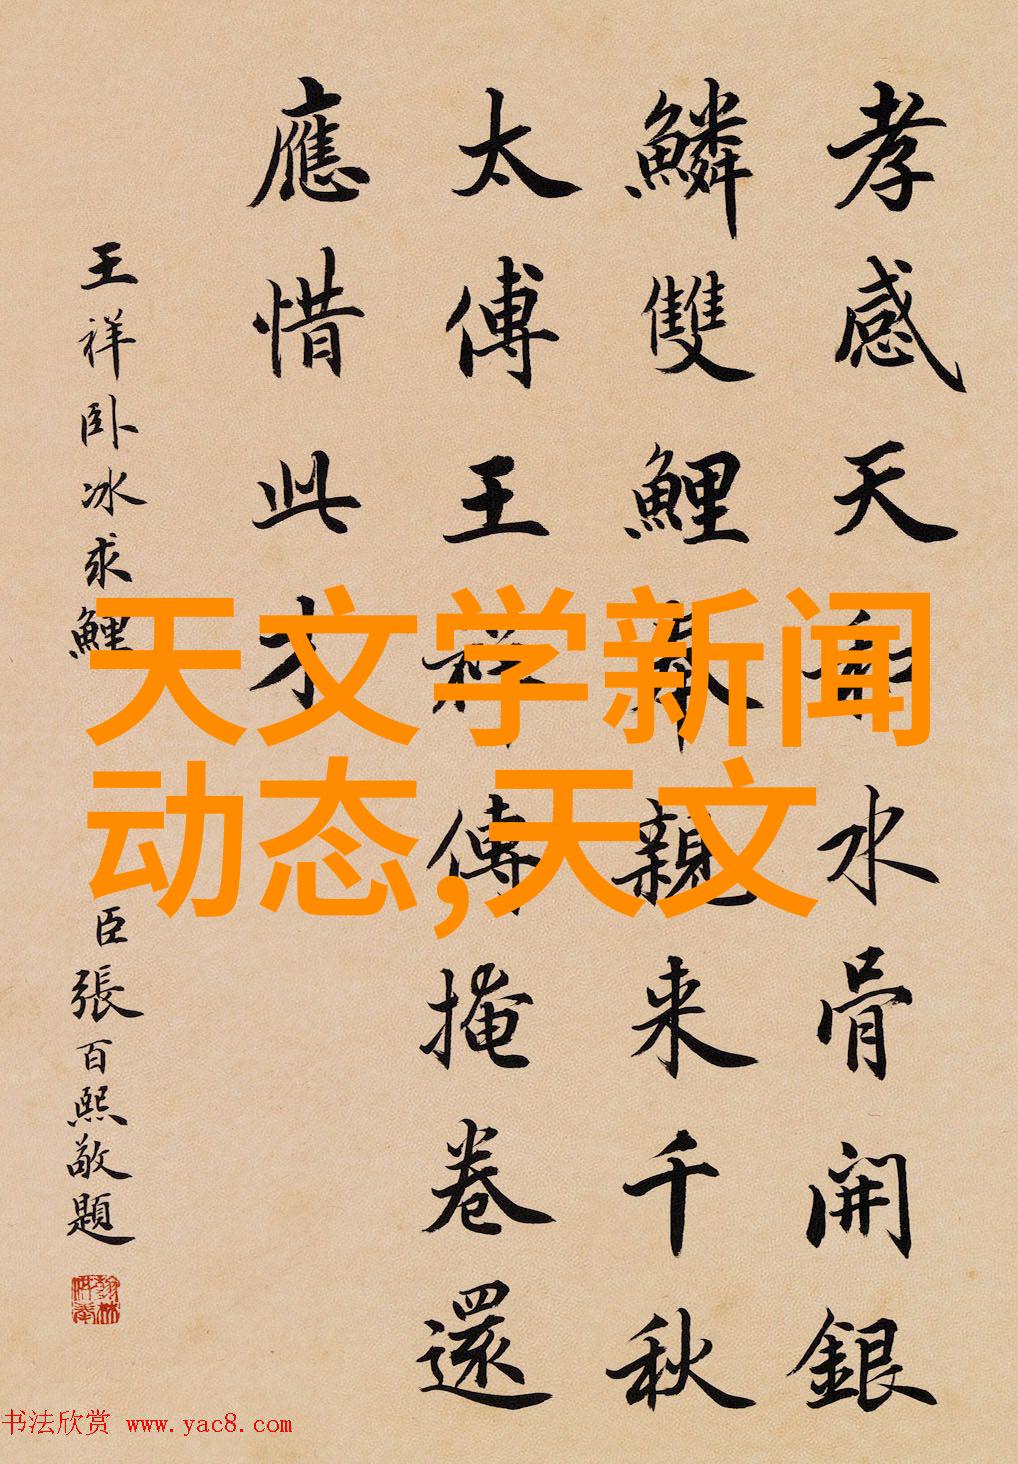 孝感天水骨開銀
鱗雙鯉親来千秋
太傅王祥傳掩卷還
應惜此才
王祥卧冰求鯉
臣張百熙敬題
天文学新闻
动态,天文
书法欣赏 www.yac8.com